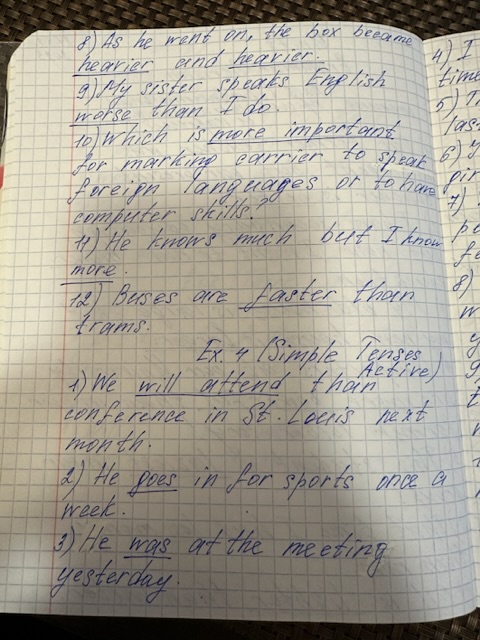 8) As he went on, the box became
heavier and heavier.
9) My sister speaks English
worse than I do.
10) Which is more important
for marking carrier to speak
foreign languages or to have
computer skills?
11) He knows much but I know
more.
12) Buses are faster than
trams.
Ex. 4 (Simple Tenses
Active)
1) We will attend than
conference in St. Louis next
month.
2) He goes in for sports once a
week.
3) He was at the meeting
yesterday.
4) I
time
5)
las
6)
7)
8)